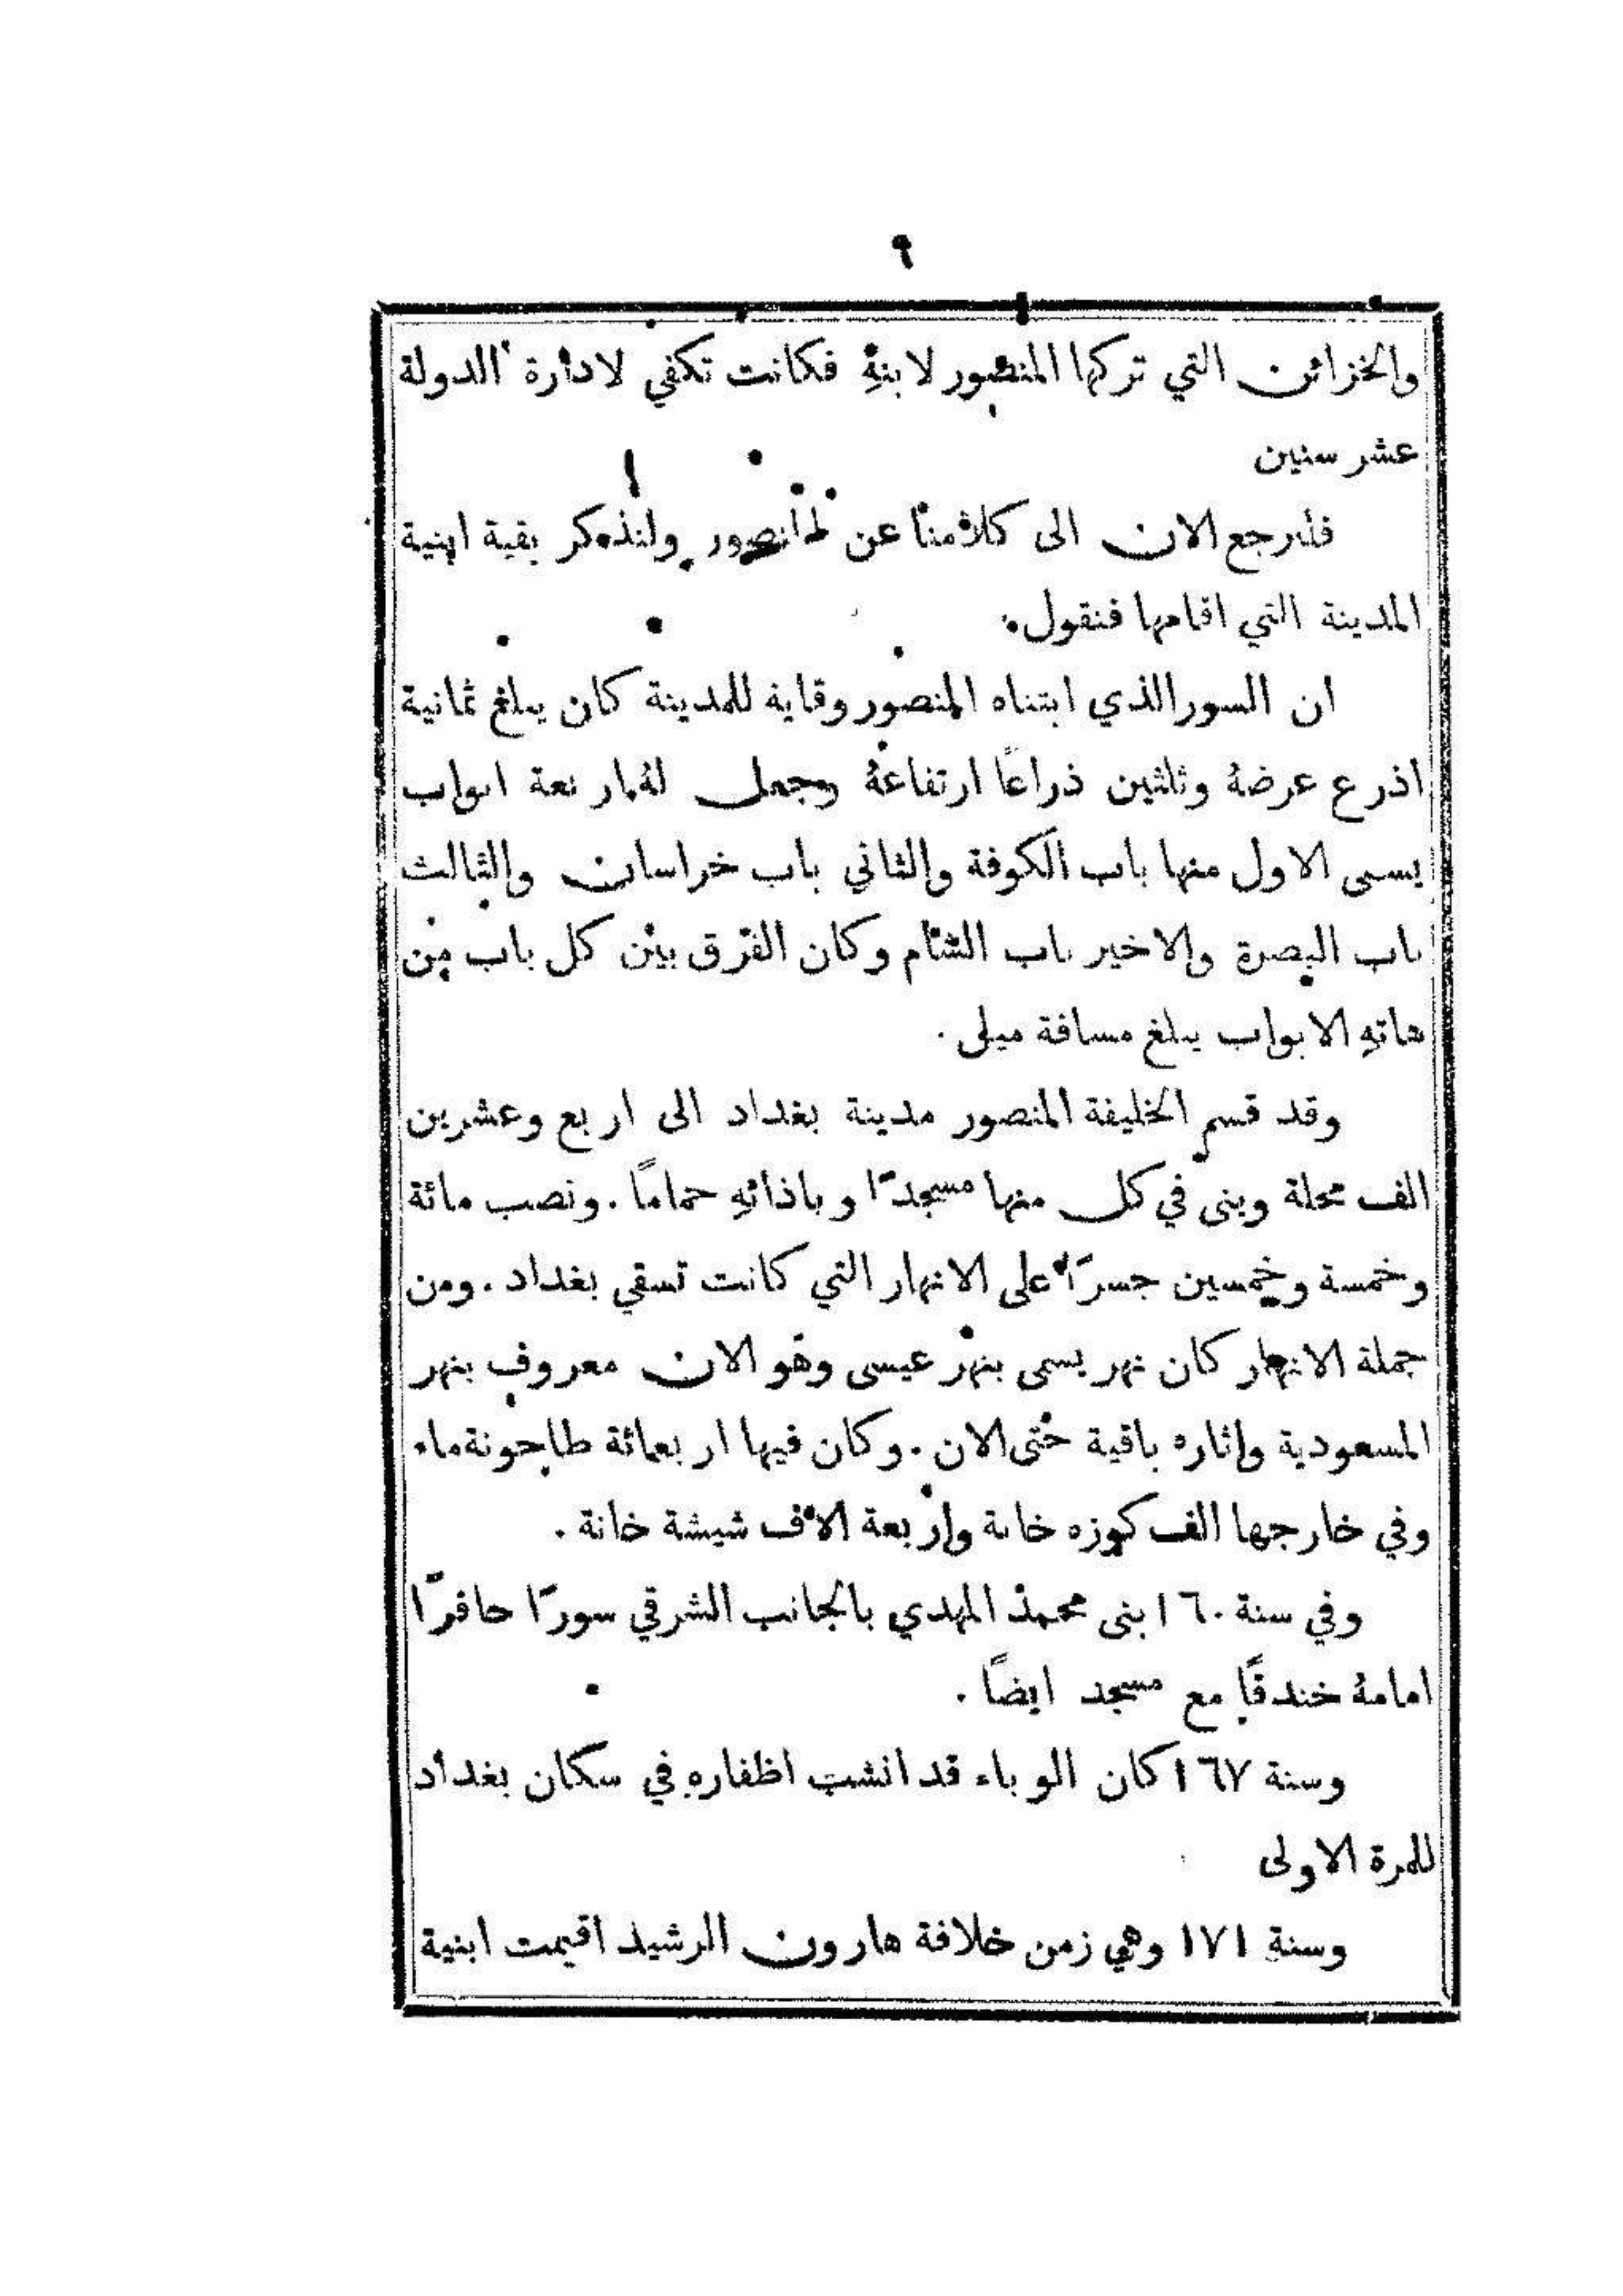 ٩
والخزائن التي تركها المنصور لابنهِ فكانت تكفي لادارة الدولة
عشر سنين
فلنرجع الان الى كلامنا عن المنصور ولنذكر بقية ابنية
المدينة التي اقامها فنقول.
ان السور الذي ابتناه المنصور وقاية للمدينة كان يبلغ ثمانية
اذرع عرضهُ وثلثين ذراعًا ارتفاعهُ وجعل لهُ اربعة ابواب
يسمى الاول منها باب الكوفة والثاني باب خراسان والثالث
باب البصرة والاخير باب الشام وكان الفرق بين كل باب من
هاتهِ الابواب يبلغ مسافة ميلى .
وقد قسم الخليفة المنصور مدينة بغداد الى اربع وعشرين
الف محلة وبنى في كل منها مسجدًا وباذائهِ حمامًا . ونصب مائة
وخمسة وخمسين جسرًا على الانهار التي كانت تسقي بغداد . ومن
جملة الانهار كان نهر يسمى بنهر عيسى وهو الان معروف بنهر
المسعودية واثاره باقية حتى الان . وكان فيها اربعمائة طاحونة ماء
وفي خارجها الف كوزه خانة واربعة الاف شيشة خانة .
وفي سنة ١٦٠ بنى محمد المهدي بالجانب الشرقي سورًا حافرًا
امامهُ خندقًا مع مسجد ايضًا .
وسنة ١٦٧ كان الوباء قد انشب اظفاره في سكان بغداد
للمرة الاولى
وسنة ١٧١ وهي زمن خلافة هارون الرشيد اقيمت ابنية